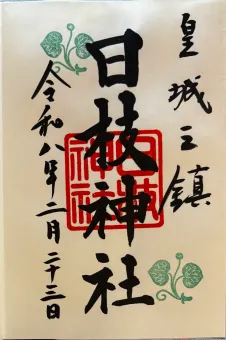 皇城之鎮
日枝神社
令和八年二月二十三日
日枝神社